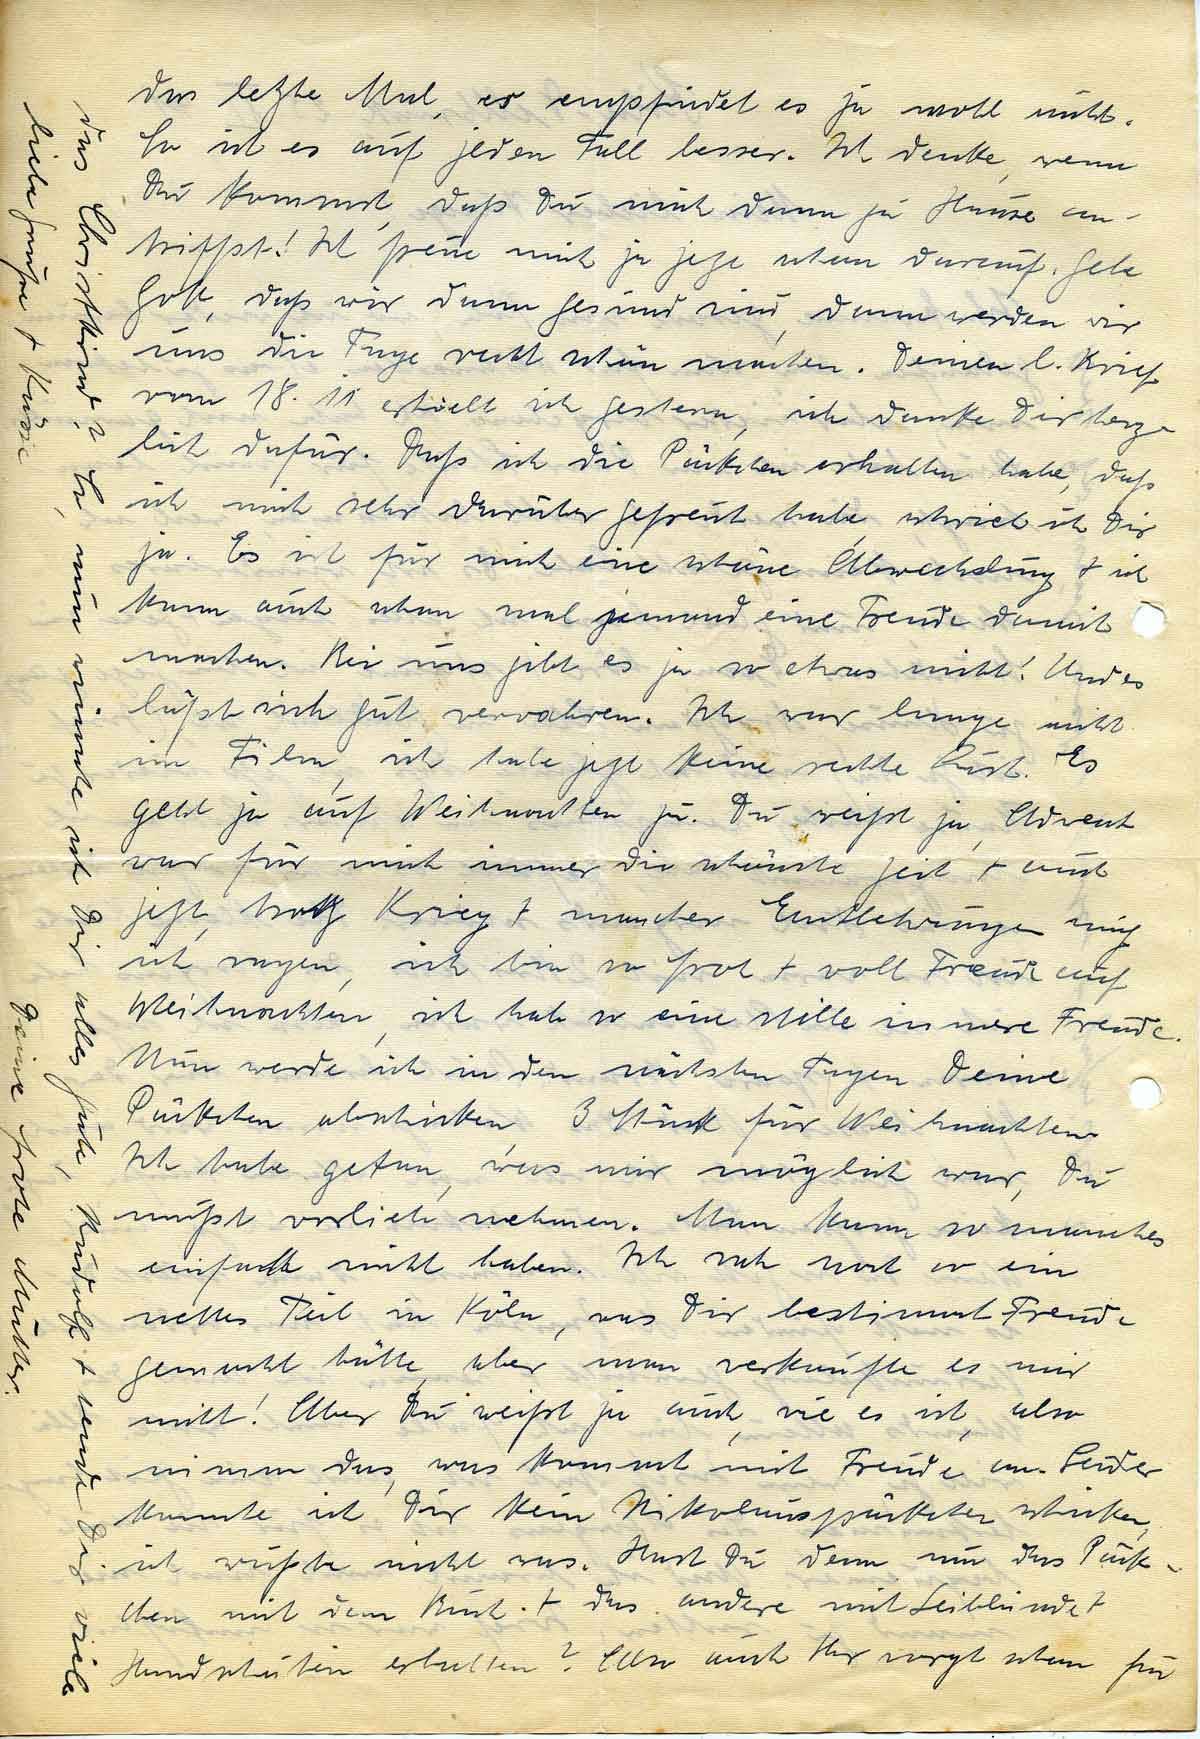 das letzte Mal, er empfindet es ja wohl nicht.
So ist es auf jeden Fall besser. Ich denke, wenn
Du kommst, daß Du mich dann zu Hause an-
triffst! Ich freue mich ja jetzt schon darauf. Gebe
Gott, daß wir dann gesund sind, dann werden wir
uns die Tage recht schön machen. Deinen l. Brief
vom 18. 11 erhielt ich gestern, ich danke Dir herz-
lich dafür. Daß ich die Päckchen erhalten habe, daß
ich mich sehr darüber gefreut habe schrieb ich Dir
ja. Es ist für mich eine schöne Abwechslung + ich
kann auch schon mal jemand eine Freude damit
machen. Bei uns gibt es ja so etwas nicht! Und es
läßt sich gut verwahren. Ich war lange nicht
im Film, ich habe jetzt keine rechte Lust. Es
geht ja auf Weihnachten zu. Du weißt ja, Advent
war für mich immer die schönste Zeit + auch
jetzt, trotz Krieg + mancher Entbehrungen muß
ich sagen, ich bin so froh + voll Freude auf
Weihnachten, ich hab so eine stille innere Freude.
Nun werde ich in den nächsten Tagen Deine
Päckchen abschicken, 3 Stück für Weihnachten.
Ich habe getan, was mir möglich war, Du
mußt vorlieb nehmen. Man kann so manches
einfach nicht haben. Ich sah noch so ein
nettes Teil in Köln, was Dir bestimmt Freude
gemacht hätte, aber man verkaufte es mir
nicht! Aber Du weißt ja auch, wie es ist, also
nimm das, was kommt mit Freude an. Leider
konnte ich Dir kein Nikolauspäckchen schicken,
ich wußte nicht was. Hast Du denn nun das Päck-
chen mit dem Buch + das andere mit Leibbinde +
Handschuhen erhalten? Also auch Ihr sorgt schon für
das Christkind? So, nun wünsche ich Dir alles Gute, Rudolf + sende Dir viele
liebe Grüße + Küsse
Deine frohe Mutter.